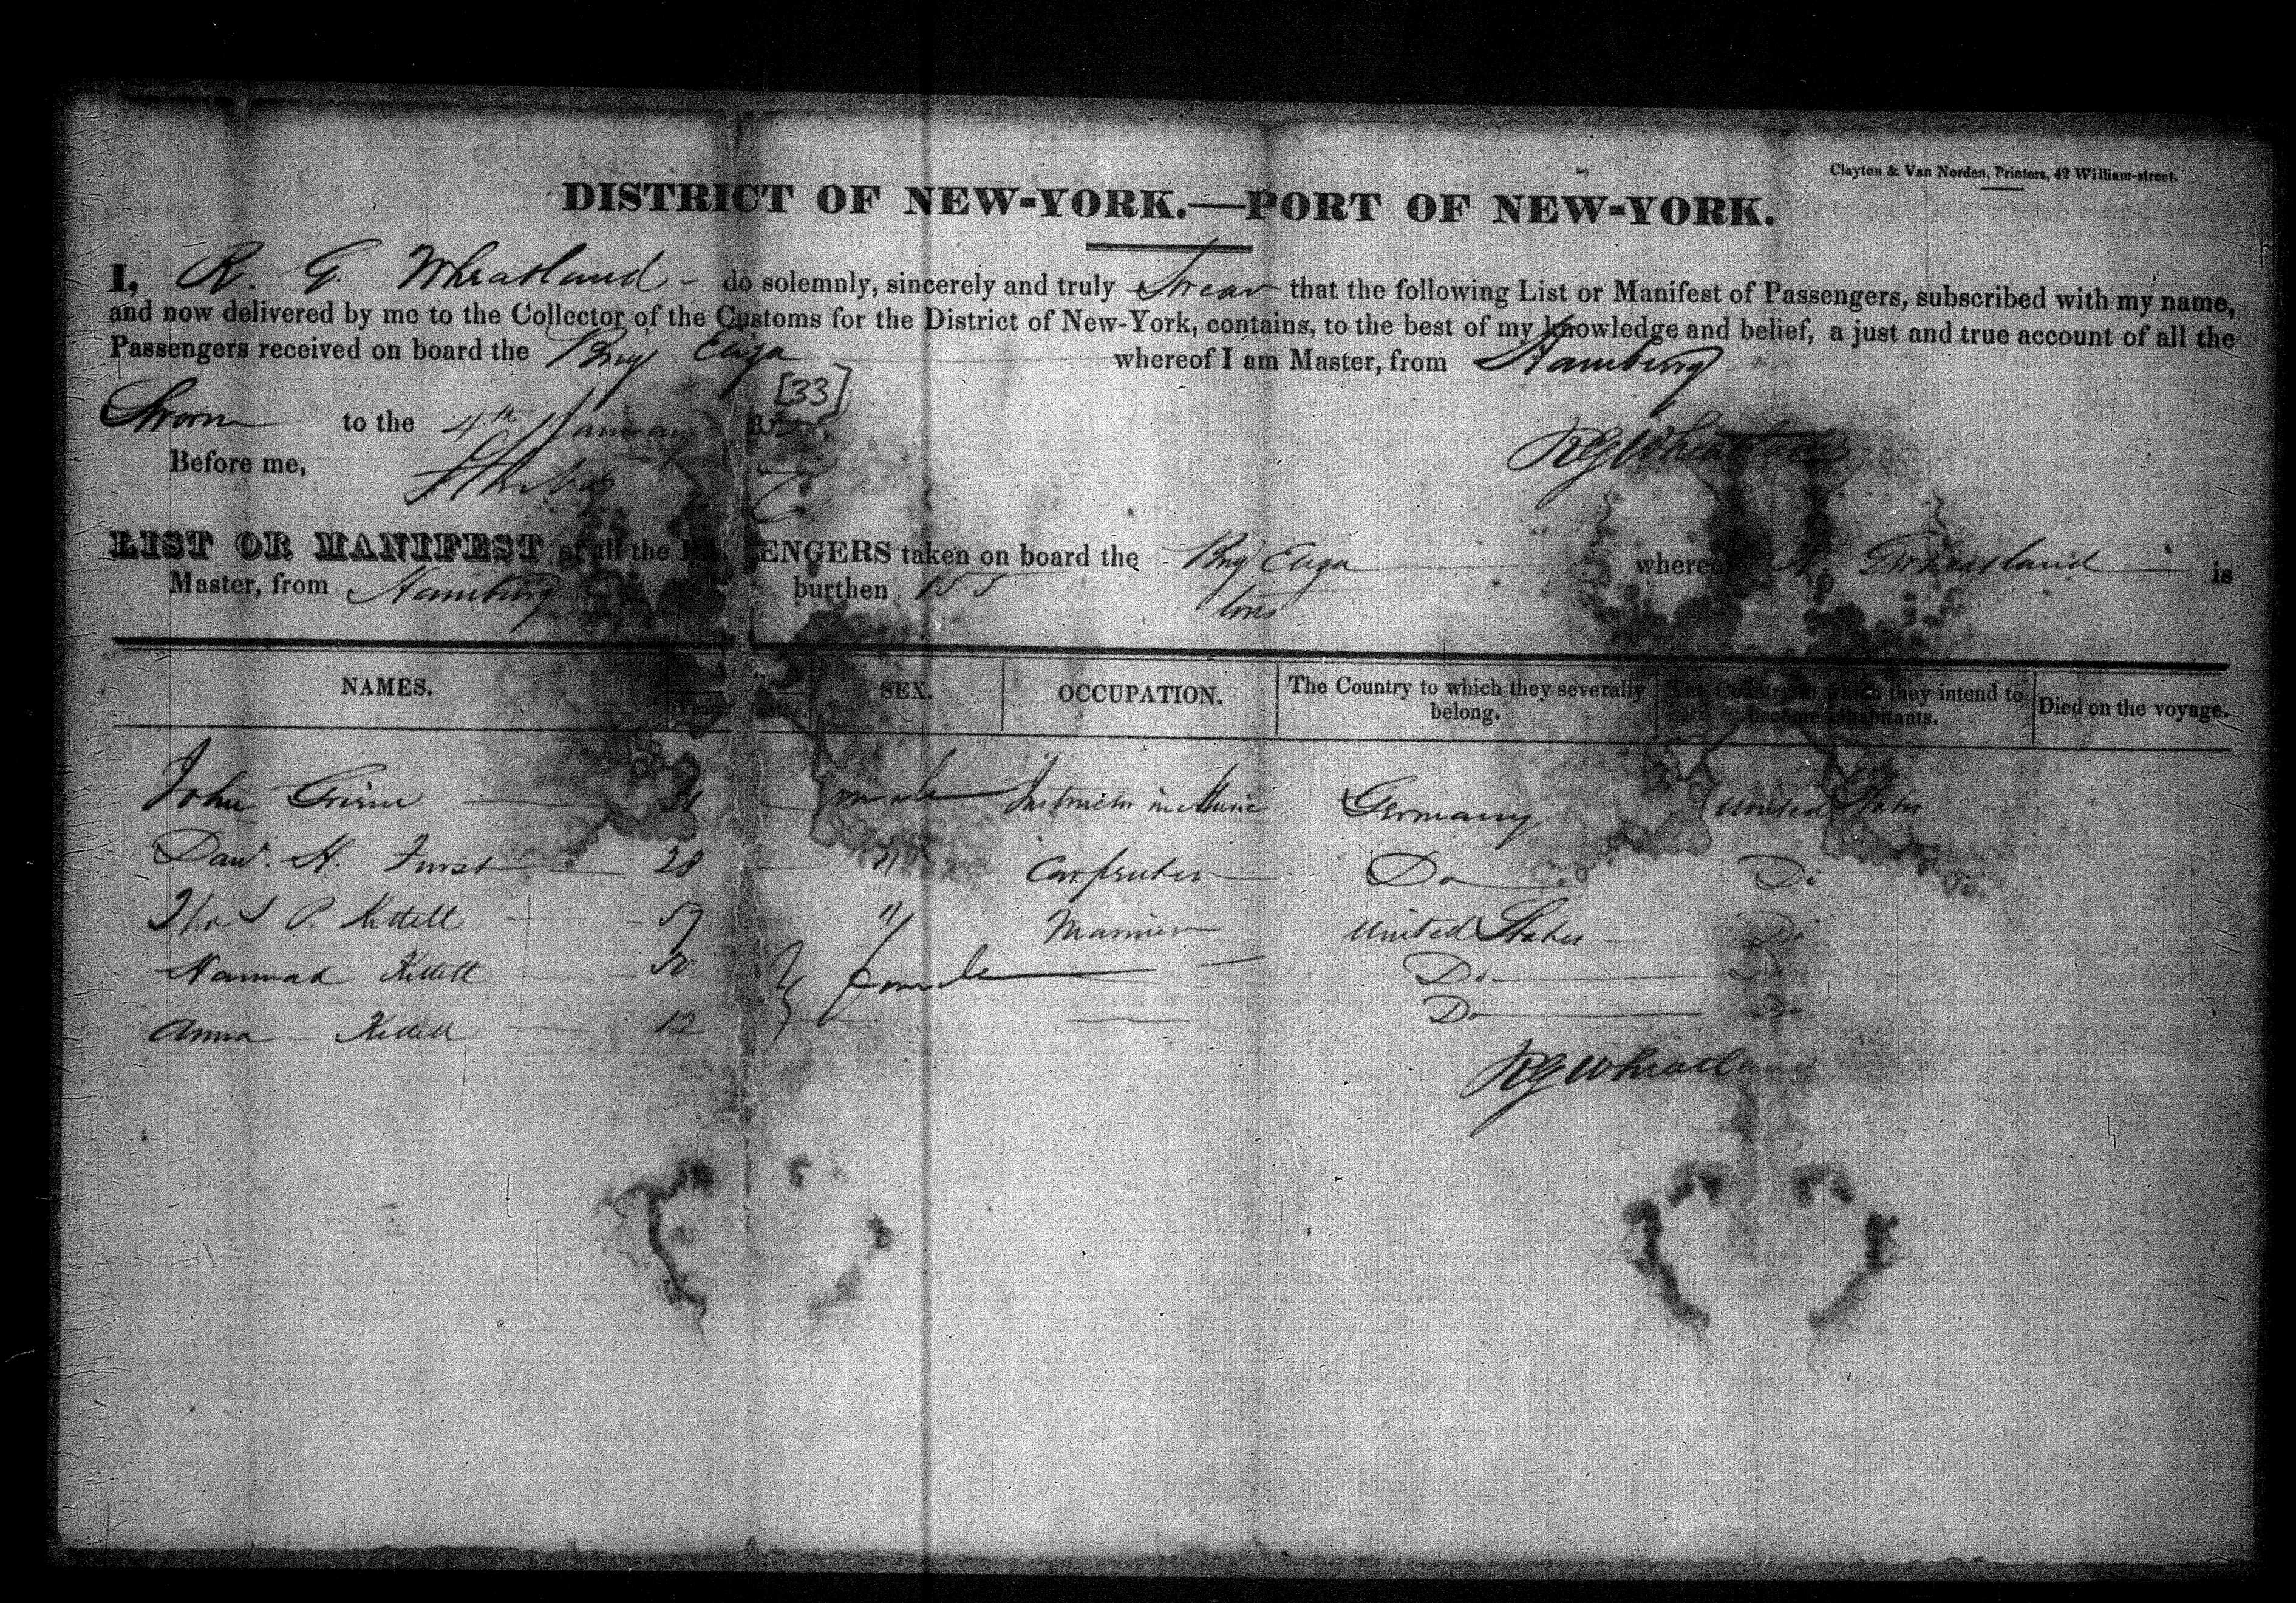 Clayton & Van Norden, Printers, 42 William-street.
DISTRICT OF NEW-YORK.—PORT OF NEW-YORK.
I, R. G. Wheatland - do solemnly, sincerely and truly Swear that the following List or Manifest of Passengers, subscribed with my name,
and now delivered by me to the Collector of the Customs for the District of New-York, contains, to the best of my knowledge and belief, a just and true account of all the
Passengers received on board the Brig Eliza whereof I am Master, from Hamburg
[33]
Sworn to the 4th January
RG Wheatland
Before me,
LIST OR MANIFEST of all the PASSENGERS taken on board the Brig Eliza whereof R. G. Wheatland is
Master, from Hamburg burthen 155 tons
NAMES. Years Mths. SEX. OCCUPATION. The Country to which they severally belong. The Country in which they intend to become inhabitants. Died on the voyage.
John male Instructor in Music Germany United States
H. Furst 28 " Carpenter Do Do
P. Kettell " Mariner United States Do
Hannah Kettell 50 } female Do Do
Anna Kettell 12 Do Do
RG Wheatland